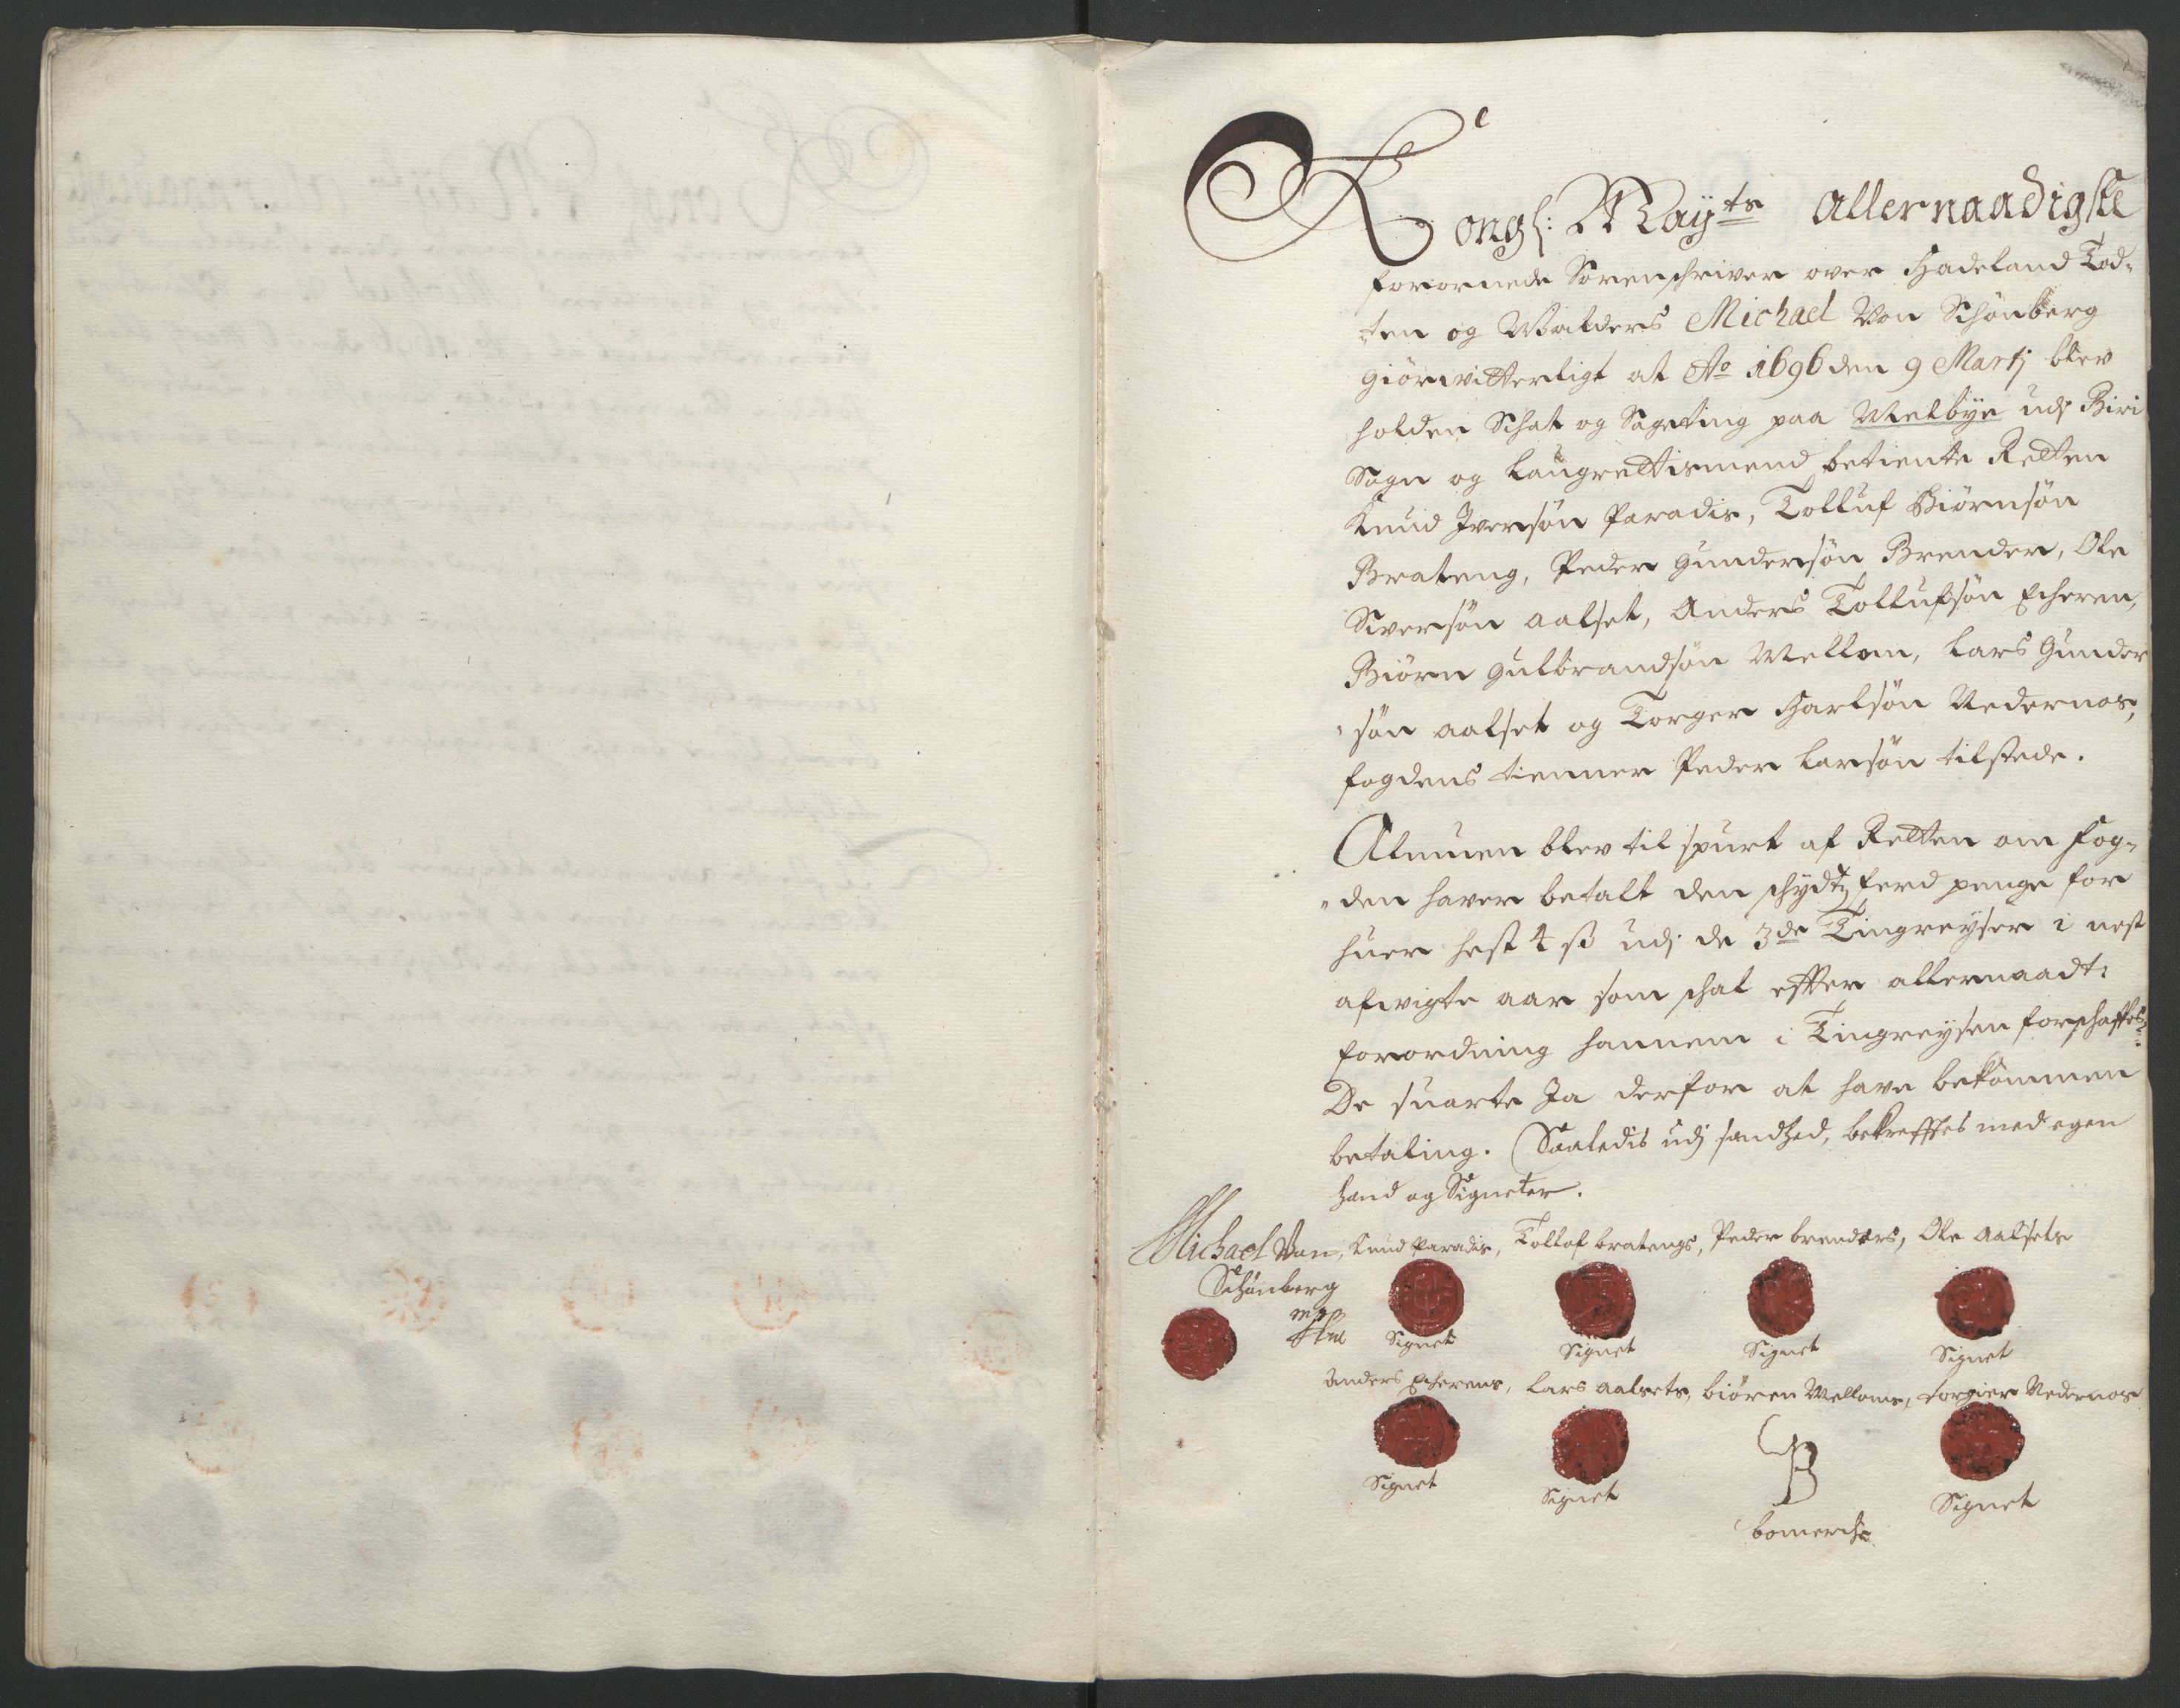 Kongl: Mayts Allernaadigste
forornede Sorenschriver over Hadeland Tod-
ten og Walders Michael Von Schönberg
giör witterligt at Ao 1696 den 9 Martj blev
holden Schat og Sageting paa Melbye udj Biri
Sogn og laugrettismend betiente Retten
Knud Jversön Paradis, Tolluf Biörnsön
Brateng, Peder Gundersön Brender, Ole
Siversön aalset, Anders Tollufsön Echeren,
Biörn Gulbrandsön Mellom, Lars Gunder
sön aalset og Torger Harlsön Nedernos,
fogdens tienner Peder Larsön tilstede.
Almuen blev tilspurt af Retten om fog-
den haver betalt den schydtzferd penge for
huer hest 4 ß udj de 3de Tingreyser i nest
afvigte aar som schal effter allernaadt:
forordning hannem i Tingreysen forschaffes,
De suarte Ja derfor at have bekommen
betaling. Saaledis udj sandhed, bekreffftes med egen
hand og Signeter.
Michael Von, Knud Paradis, Tollof bratengs, Peder brenders, Ole Aalsets
Schönberg
mpp
Signet Signet Signet Signet
Anders Echerens, Lars aalsets, biören Melloms, torgier Nedernos
Signet Signet B Signet
bomerche